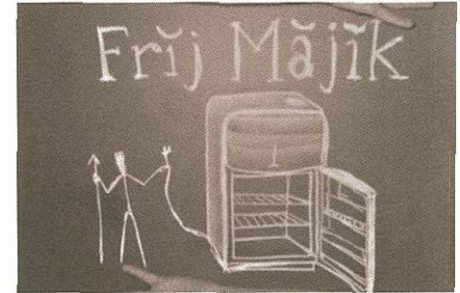 Frĭj Măjĭk